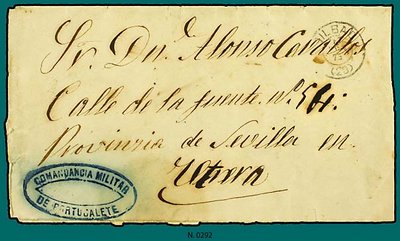 Sr. Dn. Alonso Cavallos
Calle de la fuente nº 54:
Provinzia de Sevilla en
Utrera
BILBAO
(23)
COMANDANCIA MILITAR
DE PORTUGALETE
N. 0292